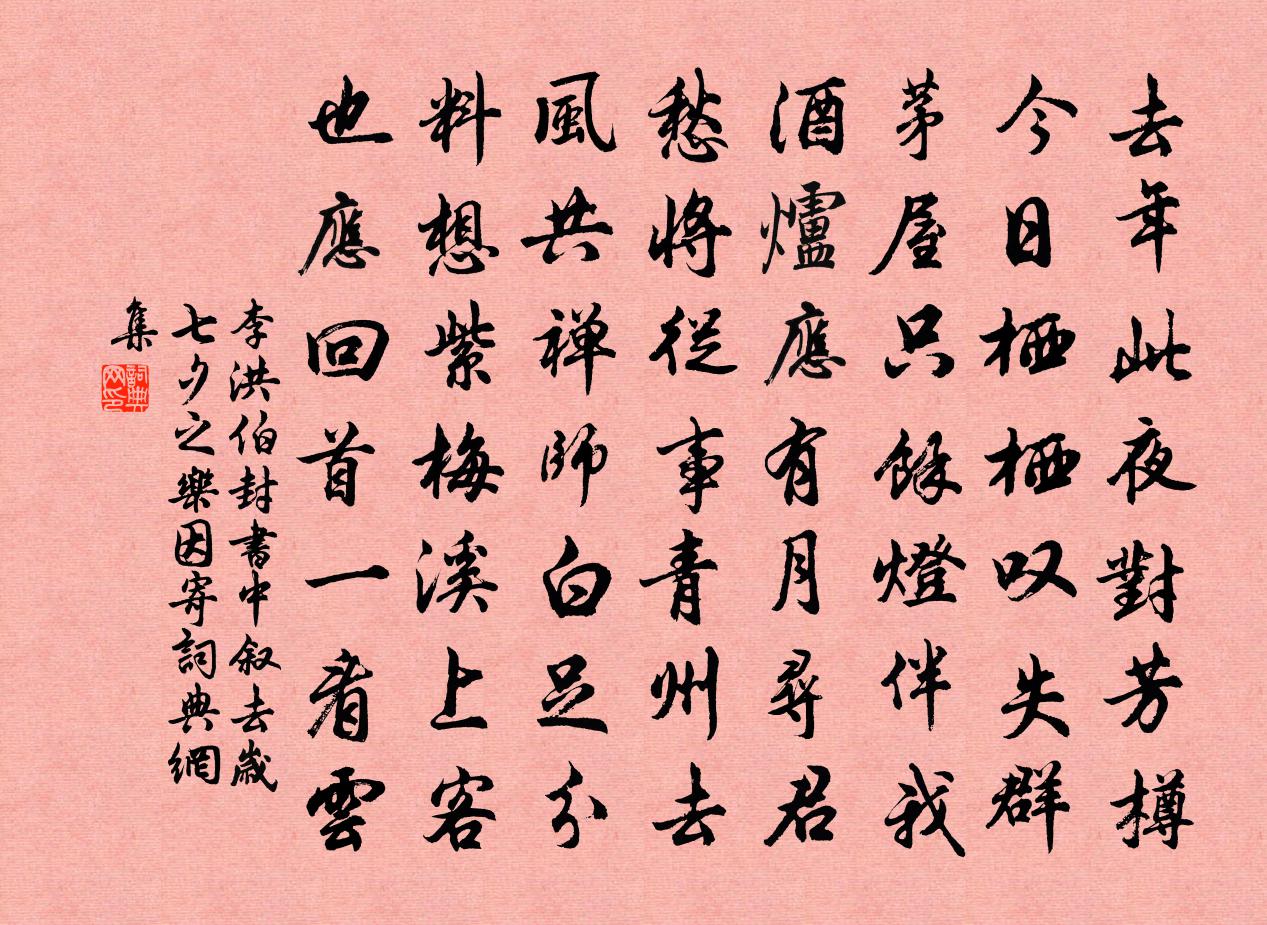 去年此夜對芳樽
今日栖栖叹失群
茅屋只餘燈伴我
酒爐應有月尋君
愁將從事青州去
風共禅師白足分
料想紫梅溪上客
也應回首一看雲
李洪伯封書中叙去歲
七夕之樂因寄詞典網
集
詞典網印